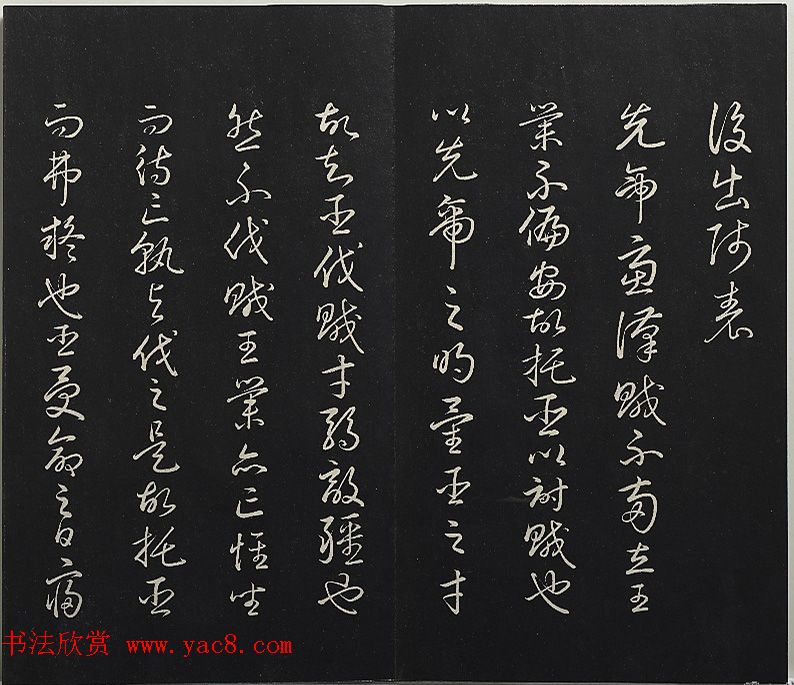 後出師表
先帝慮漢賊不兩立王
業不偏安故托臣以討賊也
以先帝之明量臣之才
故知臣伐賊才弱敵疆也
然不伐賊王業亦亡惟坐
而待亡孰與伐之是故托臣
而弗疑也臣受命之日寢
书法欣赏 www.yac8.com